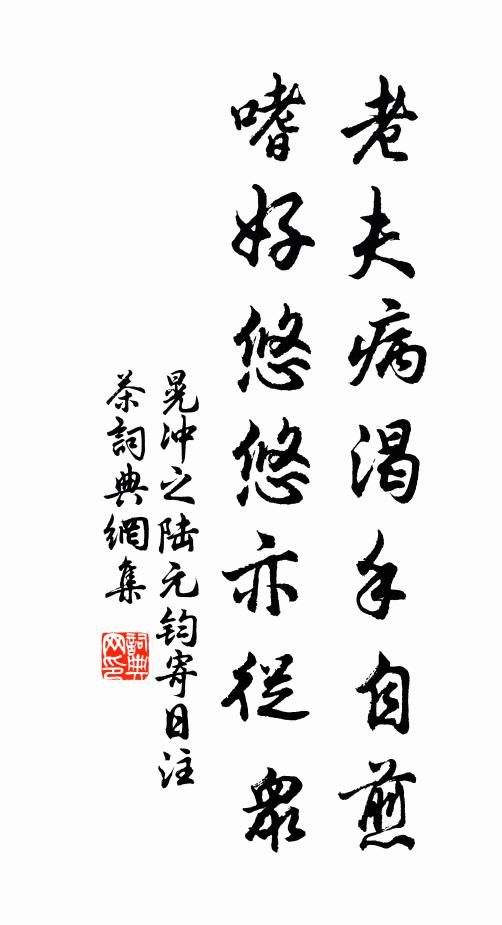 老夫病渴手自煎
嗜好悠悠亦從眾
晁沖之陆元鈞寄日注
茶詞典網集
詞典網印